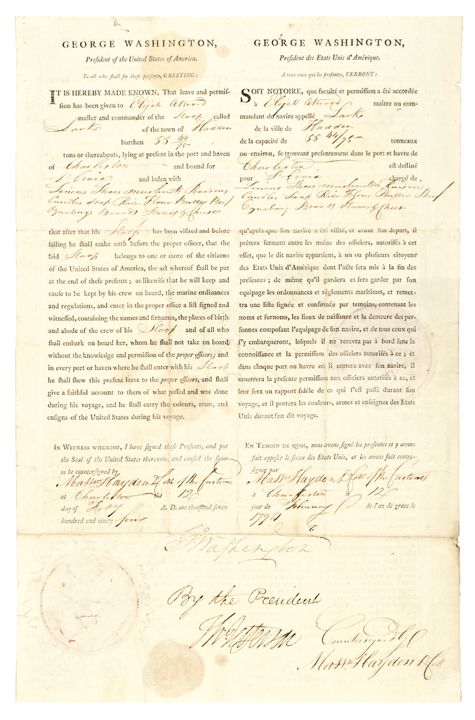 GEORGE WASHINGTON,
President of the United States of America.
To all who shall see these presents, GREETING:
IT IS HEREBY MADE KNOWN, That leave and permis-
sion has been given to Elijah Atwood
master and commander of the Sloop called
Lark of the town of Hadden
burthen 55 44/95
tons or thereabouts, lying at present in the port and haven
of Charleston and bound for
St Croix and laden with
Linens Shoes merchants Raisins
Candles Soap Rice Flour Butter Beef
that after that his Sloop has been visited and before
sailing he shall make oath before the proper officer, that the
said Sloop belongs to one or more of the citizens
of the United States of America, the act whereof shall be put
at the end of these presents; as likewise that he will keep and
cause to be kept by his crew on board, the marine ordinances
and regulations, and enter in the proper office a list signed and
witnessed, containing the names and sirnames, the places of birth
and abode of the crew of his Sloop and of all who
shall embark on board her, whom he shall not take on board
without the knowledge and permission of the proper officer; and
in every port or haven where he shall enter with his Sloop
he shall shew this present leave to the proper officer, and shall
give a faithful account to them of what passed and was done
during his voyage, and he shall carry the colours, arms, and
ensigns of the United States during his voyage.
IN WITNESS WHEREOF, I have signed these Presents, and put
the Seal of the United States thereunto, and caused the same
to be countersigned by
at Charleston the 12
day of A. D. one thousand seven
hundred and ninety four
GEORGE WASHINGTON,
President des Etats Unis d'Amérique.
A tous ceux qui les presentes, VERRONT:
SOIT NOTOIRE, que faculté et permission a été accordée
à Elijah Atwood maitre ou com-
mandant du navire appellé Lark
de la ville de Hadden
de la capacité de 55 44/95 tonneaux
ou environ, se trouvant presentement dans le port et havre de
Charleston et destiné
pour St Croix chargé de
Linens Shoes merchants Raisins
Candles Soap Rice Flour Butter Beef
qu'après que son navire a été visité, et avant son depart, il
prêtera serment entre les mains des officiers, autorisés à cet
effet, que le dit navire appartient, à un ou plusieurs citoyens
des Etats Unis d'Amérique dont l'acte sera mis à la fin des
présentes; de même qu'il gardera et sera garder par son
equipage les ordonances et réglements maritimes, et remet-
tra une liste signée et confirmée par temoins, contenant les
noms et surnoms, les lieux de naissance et la demeure des per-
sonnes composant l'equipage de son navire, et de tous ceux qui
s'y embarqueront, lesquels il ne recevra pas à bord sans la
connoissance et la permission des officiers autorisés à ce; et
dans chaque port ou havre où il entrera avec son navire, il
montrera la presente permission aux officiers autorisés à ce, et
leur fera un rapport fidele de ce qui s'est passé durant son
voyage, et il portera les couleurs, armes et enseignes des Etats
Unis durant son dit voyage.
EN TEMOIN DE QUOI, nous avons signé les presentes et y avons
fait apposer le sceau des Etats Unis, et les avons fait contre-
signer par
à Charleston le 12
jour de l'an de grace le
1794
G Washington
By the President
Th: Jefferson
Countersigned by